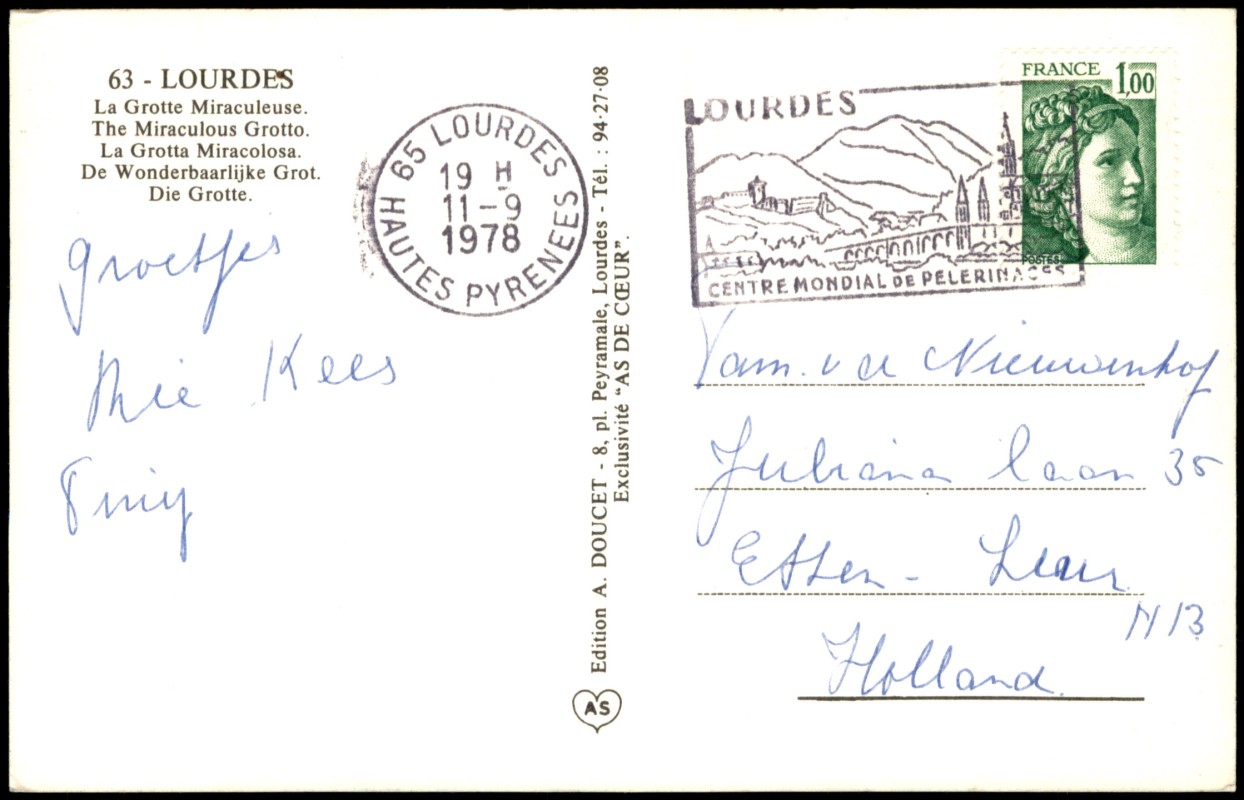 63 - LOURDES
La Grotte Miraculeuse.
The Miraculous Grotto.
La Grotta Miracolosa.
De Wonderbaarlijke Grot.
Die Grotte.
groetjes
Rie Kees
Tiny
65 LOURDES
19 H
11-9
1978
HAUTES PYRENEES
Edition A. DOUCET - 8, pl. Peyramale, Lourdes - Tél. : 94·27·08
Exclusivité "AS DE CŒUR".
AS
LOURDES
CENTRE MONDIAL DE PELERINAGES
FRANCE 1,00
POSTES
Fam. v d Nieuwenhof
Juliana laan 35
Etten - Leur
NB
Holland